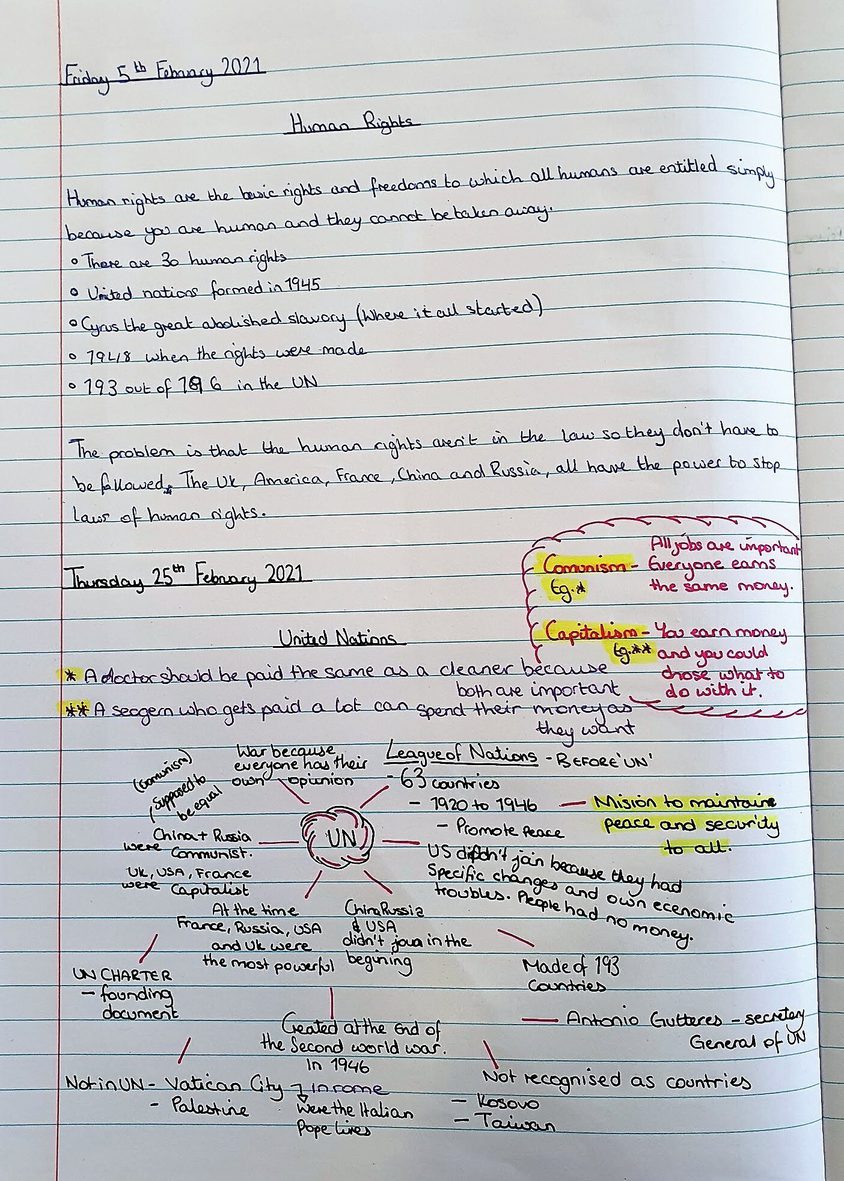 Friday 5th Febuary 2021
Human Rights
Human rights are the basic rights and freedoms to which all humans are entitled simply
because you are human and they cannot be taken away.
• There are 30 human rights
• United nations formed in 1945
• Cyrus the great abolished slavory (Where it all started)
• 1948 when the rights were made
• 193 out of 196 in the UN
The problem is that the human rights aren't in the law so they don't have to
be followed. The UK, America, France, China and Russia, all have the power to stop
laws of human rights.
Thursday 25th February 2021
All jobs are important
Comunism - Everyone earns
Eg.* the same money.
Capitalism - You earn money
Eg.** and you could
chose what to
do with it.
United Nations
* A doctor should be paid the same as a cleaner because
both are important
** A seogem who gets paid a lot can spend their money as
they want
(Comunism)
supposed to
be equal
War because
everyone has their
own opiunion
League of Nations - BEFORE 'UN'
- 63 countries
- 1920 to 1946 - Mision to maintaine
peace and security
to all.
- Promote Peace
UN
China + Russia
were Communist.
UK, USA, France
were Capitalist
US didn't join because they had
Specific changes and own ecenomic
troubles. People had no money.
At the time
France, Russia, USA
and UK were
the most powerful
China Russia
& USA
didn't join in the
begining
UN CHARTER
- founding
document
Made of 193
Countries
Created at the End of
the Second world war.
In 1946
Antonio Gutteres - secretary
General of UN
Not in UN - Vatican City → in rome
- Palestine
Were the Italian
Pope lives
Not recognised as countries
- Kosovo
- Taiwan